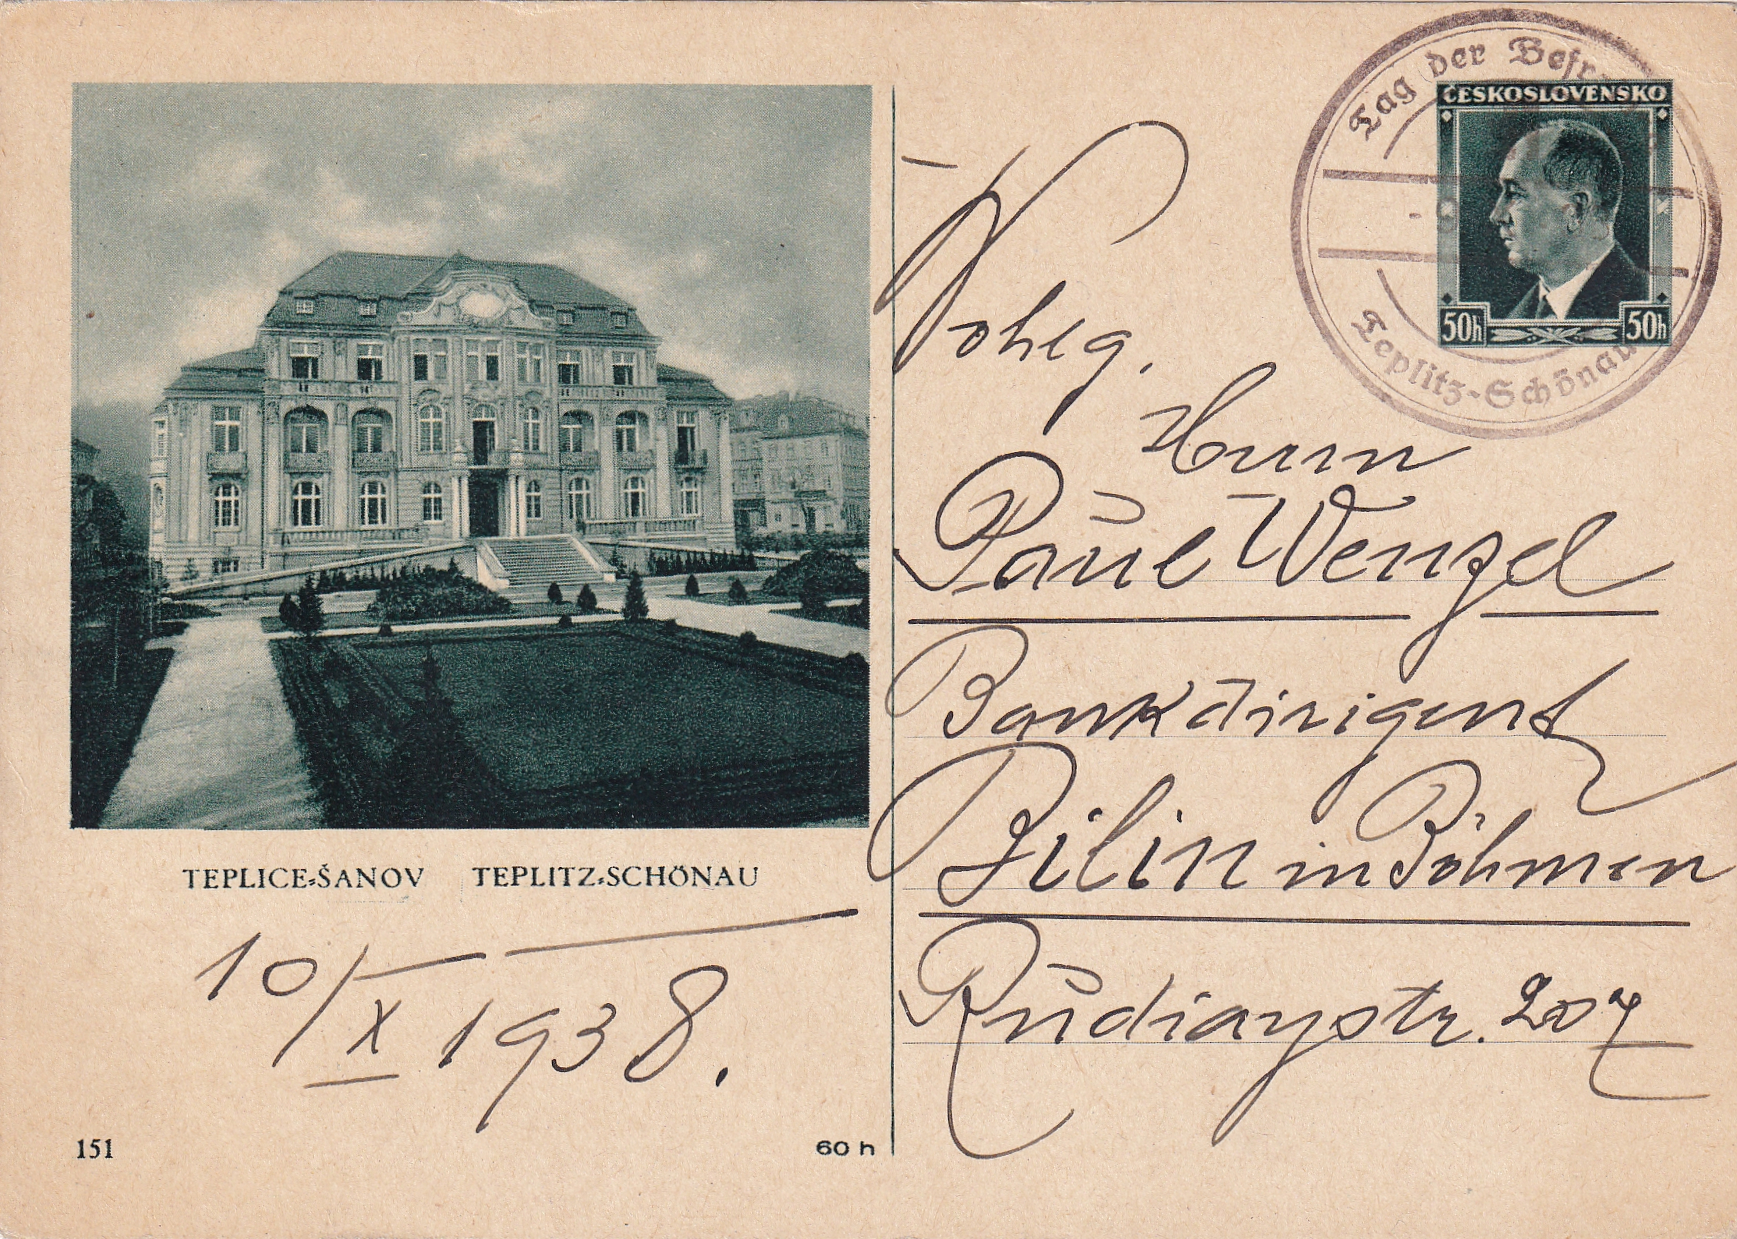 Tag der Befr
ČESKOSLOVENSKO
50h 50h
Teplitz-Schönau
Wohlg.
Herrn
Paul Wenzel
Bankdirigent
Bilin in Böhmen
TEPLICE-ŠANOV TEPLITZ-SCHÖNAU
10/X 1938.
151
60 h